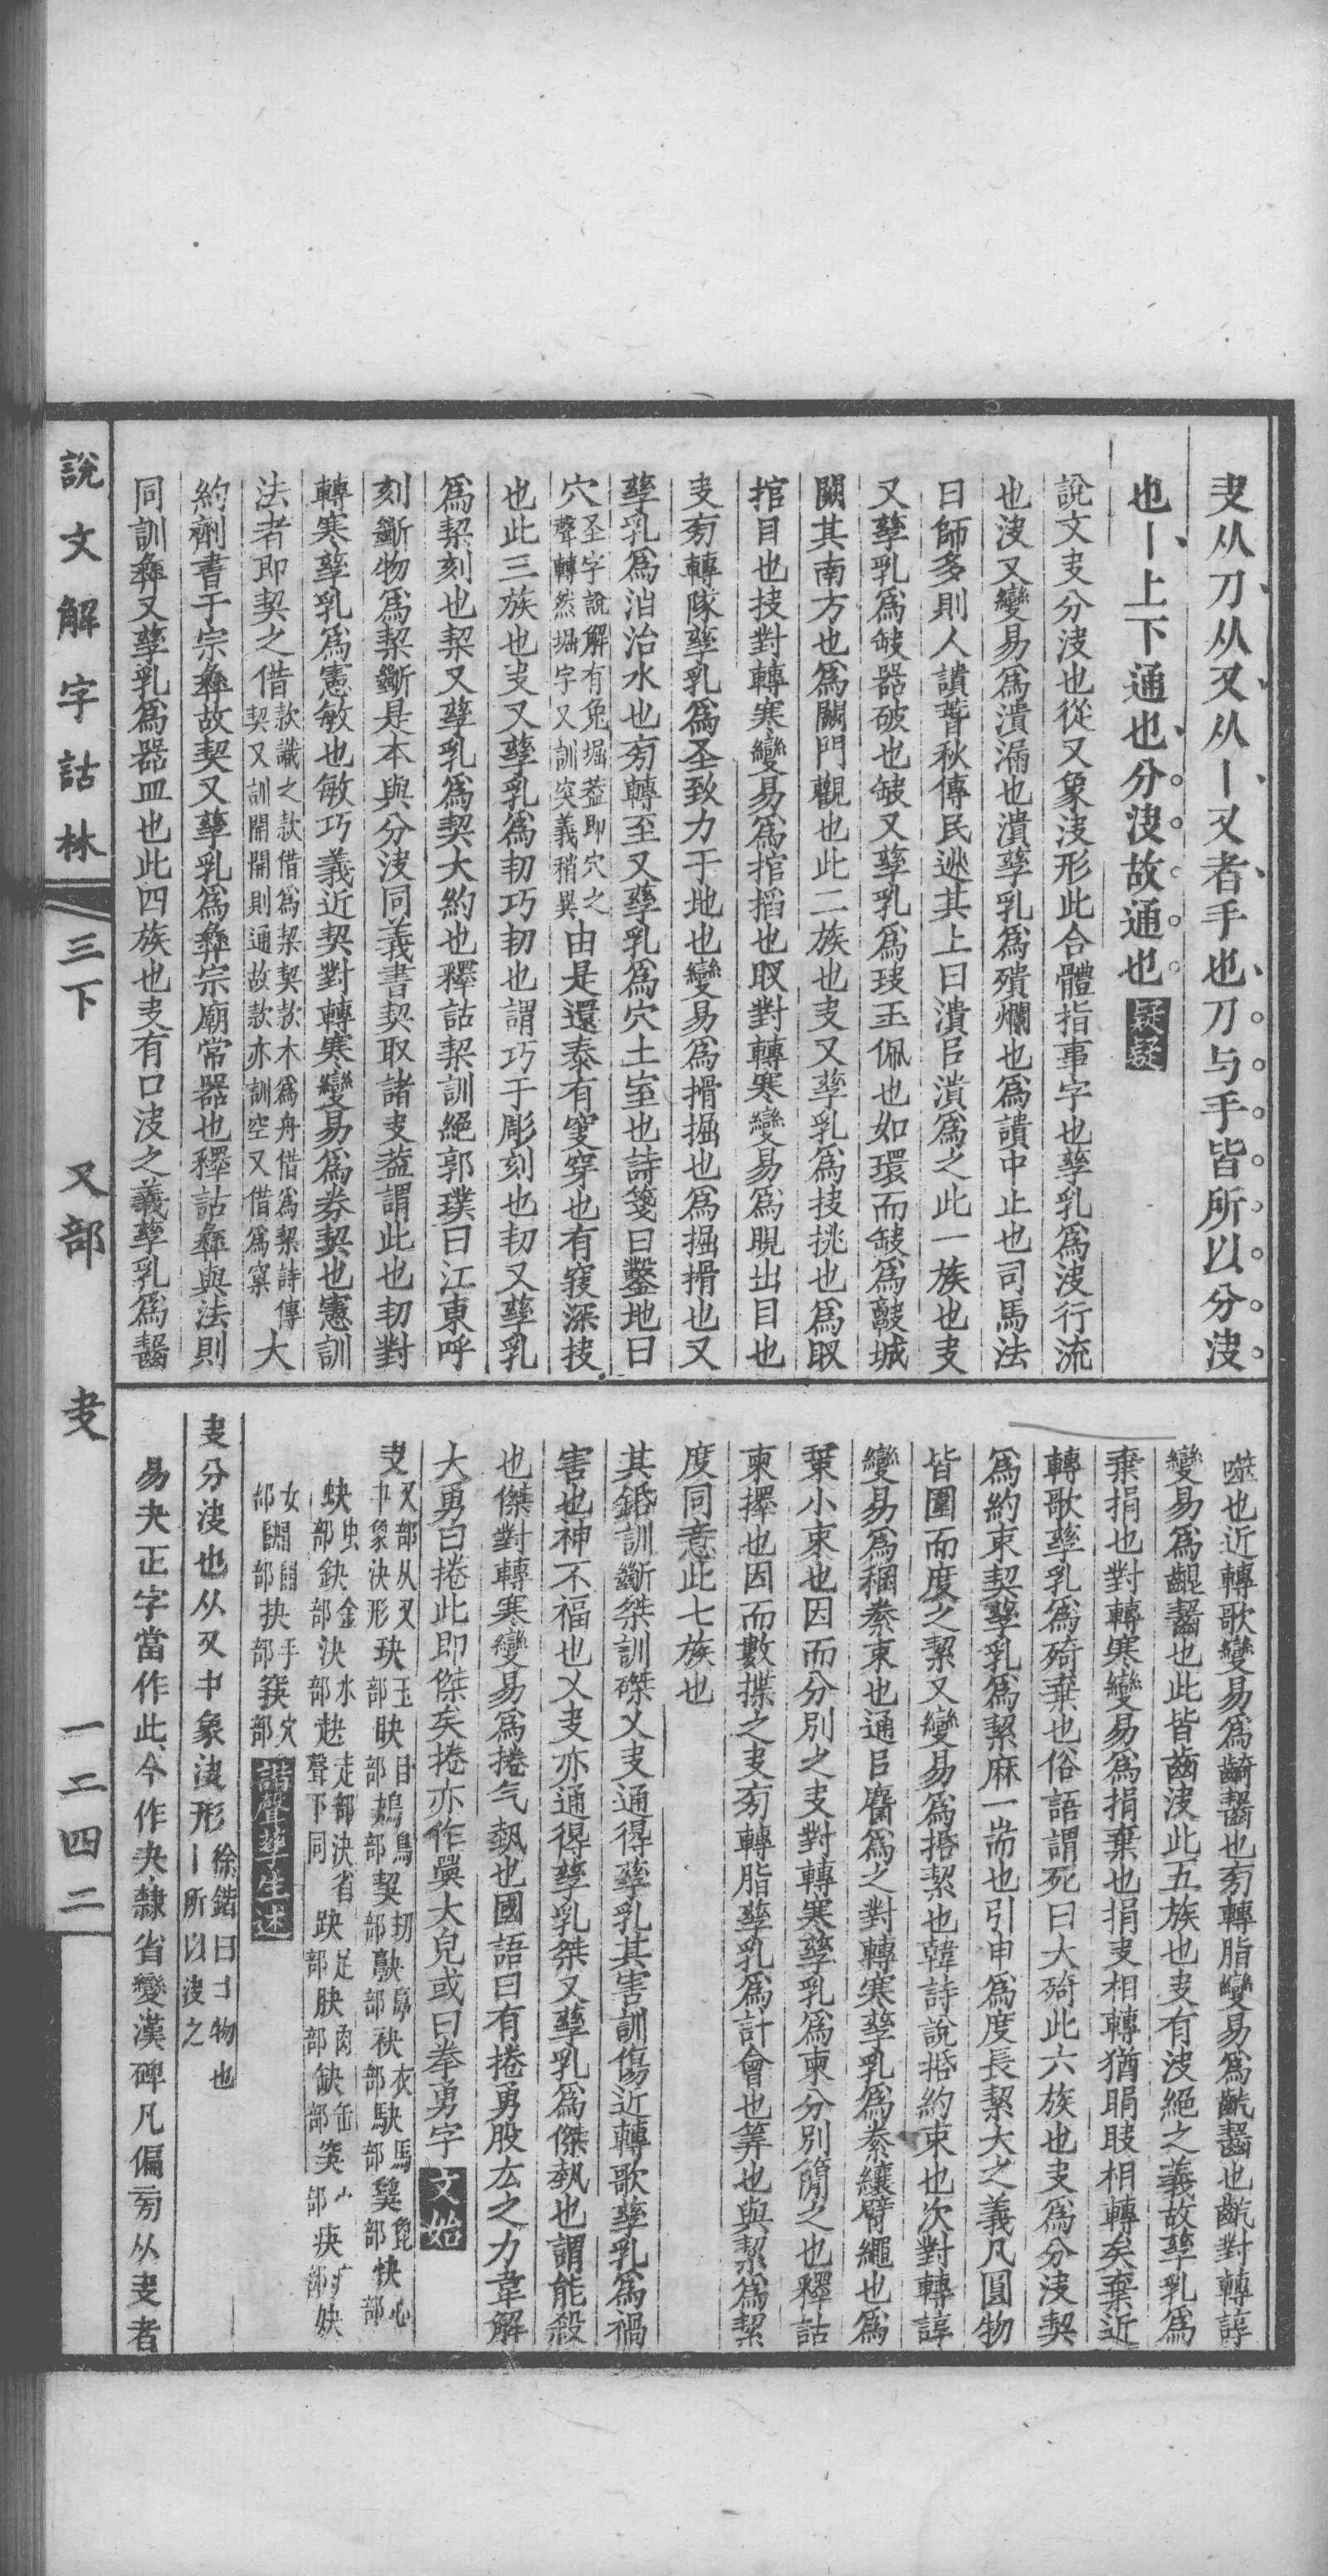 叏从刀从又从丨又者手也刀与手皆所以分決
也丨上下通也分決故通也疑疑
說文叏分決也從又象決形此合體指事字也孳乳爲決行流
也決又變易爲潰漏也潰孳乳爲殨爛也爲讃中止也司馬法
曰師多則人讃春秋傳民逃其上曰潰㠯潰爲之此一族也叏
又孳乳爲缺器破也缺又孳乳爲玦玉佩也如環而缺爲䦼城
闕其南方也爲闕門觀也此二族也叏又孳乳爲抉挑也爲䀏
捾目也抉對轉寒變易爲捾搯也䀏對轉寒變易爲睍出目也
叏㫄轉隊孳乳爲圣致力于地也變易爲搰掘也爲掘搰也又
孳乳爲汩治水也㫄轉至又孳乳爲穴土室也詩箋曰鑿地曰
穴圣字說解有兔堀葢即穴之聲轉然堀字又訓突義稍異由是還泰有䆕穿也有䆷深抉
也此三族也叏又孳乳爲㓞巧㓞也謂巧于彫刻也㓞又孳乳
爲栔刻也栔又孳乳爲契大約也釋詁栔訓絕郭璞曰江東呼
刻斷物爲栔斷是本與分決同義書契取諸叏葢謂此也㓞對
轉寒孳乳爲憲敏也敏巧義近契對轉寒變易爲券契也憲訓
法者即契之借款識之款借爲栔契款木爲舟借爲栔詩傳契又訓開開則通故款亦訓空又借爲窠大
約劑書于宗彝故契又孳乳爲彝宗廟常器也釋詁彝與法則
同訓彝又孳乳爲器皿也此四族也叏有口決之義孳乳爲齧
噬也近轉歌變易爲齮齧也㫄轉脂變易爲齕齧也齕對轉諄
變易爲齦齧也此皆齒決此五族也叏有決絕之義故孳乳爲
棄捐也對轉寒變易爲捐棄也捐叏相轉猶睊䀏相轉矣棄近
轉歌孳乳爲𣨼棄也俗語謂死曰大𣨼此六族也叏爲分決契
爲約束契孳乳爲絜麻一耑也引申爲度長絜大之義凡圓物
皆圍而度之絜又變易爲捪絜也韓詩說捪約束也次對轉諄
變易爲稇絭束也通㠯麕爲之對轉寒孳乳爲絭纕臂繩也爲
㯤小束也因而分別之叏對轉寒孳乳爲柬分別簡之也釋詁
柬擇也因而數揲之叏㫄轉脂孳乳爲計會也筭也與絜爲絜
度同意此七族也
其銽訓斷桀訓磔乂叏通得孳乳其害訓傷近轉歌孳乳爲禍
害也神不福也乂叏亦通得孳乳桀又孳乳爲傑埶也謂能殺
也傑對轉寒變易爲捲气埶也國語曰有捲勇股厷之力韋解
大勇曰捲此即傑矣捲亦作㒰大皃或曰拳勇字文始
叏又部从又㐄象決形玦玉部䀏目部鴂鳥部契㓞部䦼𩫖部袂衣部駃馬部㚟㲋部快心部
蚗虫部鈌金部決水部赽走部決省聲下同趹足部肤肉部缺缶部突宀部疦疒部妜
女部䦼門部抉手部䆕穴部諧聲孳生述
叏分決也从又㐄象決形丨徐鍇曰㇕物也所以決之
易夬正字當作此今作夬隸省變漢碑凡偏㫄从叏者
說文解字詁林 三下 又部 叏 一二四二